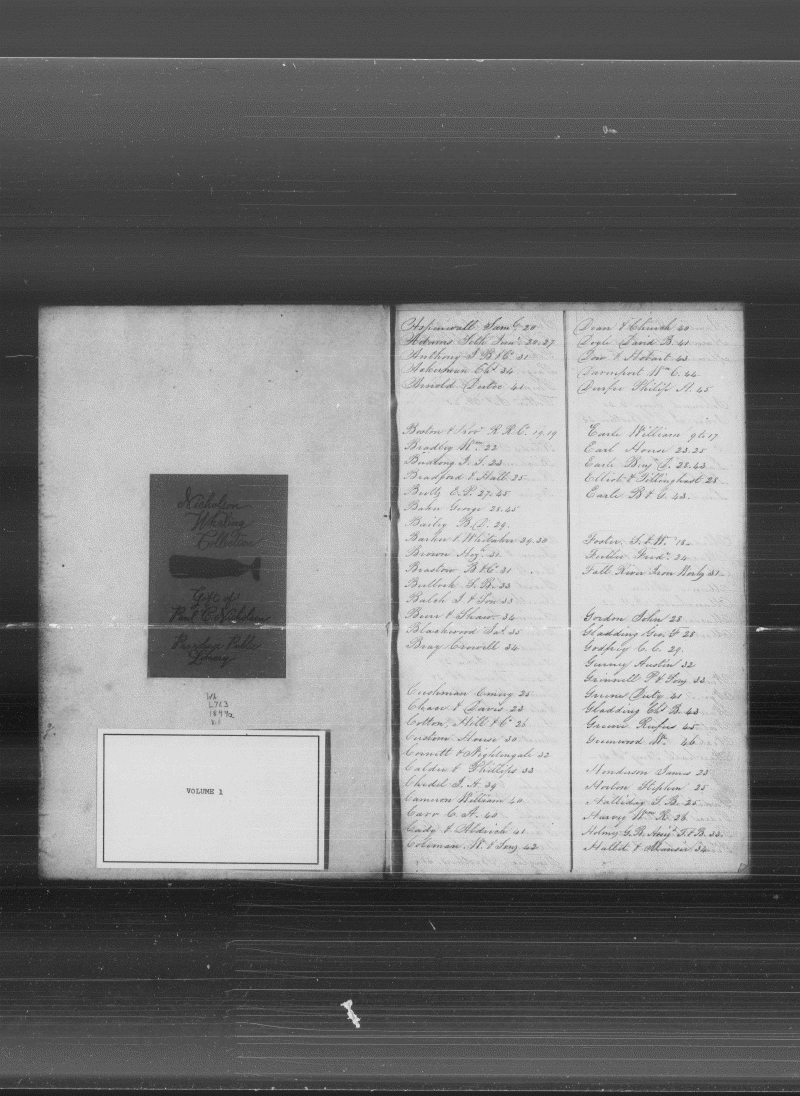 Nicholson
Whaling
Collection
Gift of
Paul C. Nicholson
Providence Public
Library
Wh
L763
1849a
v.1
VOLUME 1
Aspinwall Saml. 20
Adams Seth Junr. 20.27
Anthony J. B & Co 31
Ackerman Chs 34
Arnold Dexter 41
Boston & Prov. R.R. Co. 19.19
Bradley Wm. 22
Budlong J. S. 23
Bradford & Hall. 25
Bully E. P. 27.45
Baker George 28.45
Bailey B. D. 29.
Barker & Whitaker 29.30
Brown 31
Brastow B & Co 31
Bullock S. B. 33
Balch J. & Son 33
Burr & Shaw. 34
Blackwood Jas. 35
Bray Crowell 34
Cushman Emery 25
Chase & Davis 23
Cotton, Hill & Co 26
Custom House 30
Cornett & Nightingale 32
Calder & Phillips 33
Chedel J. A. 39
Cameron William 40
Carr C. A. 40
Cady & Aldrich 41
Coleman W. & Sons 42
Dean & Church 40
Doyle David B. 41
Dow & Hobart 43
Davenport Wm C. 44
Durfee Philip A. 45
Earle William 9 to 17
Earl House 23.25
Earle Benj D. 28.43
Elliot & Tillinghast 28
Earle B & G. 43.
Foster, S. & W. 18
Fuller Fredk. 24
Fall River Iron Works 31
Gordon John 28
Gladding Geo. F 28
Godfrey C. C. 29.
Gurney Austin 32
Grinnell P & Sons 33
Greene Duty 41
Gladding Chs B. 43
Greene Rufus 45
Greenwood W. 46
Henderson James 23
Horton Stephen 25
Halliday S. B. 25
Harvey Wm R. 26
Holmes G. B. S. & B. 33.
Hallet & 34